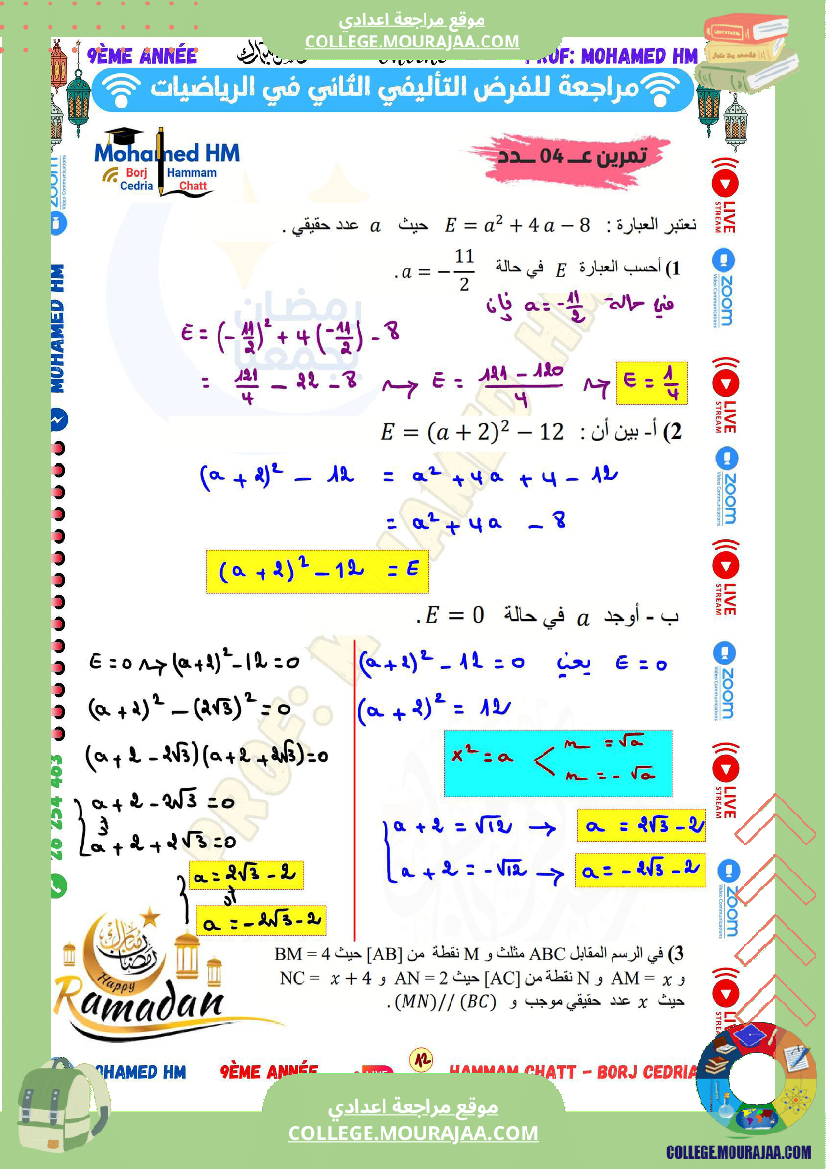 موقع مراجعة اعدادي
COLLEGE.MOURAJAA.COM
9ÈME ANNÉE
PROF: MOHAMED HM
مراجعة للفرض التأليفي الثاني في الرياضيات
Mohamed HM
Borj Cedria
Hammam Chatt
تمرين عـــ 04 ــدد
نعتبر العبارة : E = a² + 4 a − 8 حيث a عدد حقيقي .
1) أحسب العبارة E في حالة a = −11/2 .
في حالة a = -11/2 فإن
E = (-11/2)² + 4(-11/2) - 8
= 121/4 - 22 - 8 ⇝ E = (121 - 120)/4 ⇝ E = 1/4
2) أ- بين أن : E = (a + 2)² − 12
(a + 2)² - 12 = a² + 4a + 4 - 12
= a² + 4a - 8
(a + 2)² - 12 = E
ب - أوجد a في حالة E = 0 .
E = 0 يعني (a+2)² - 12 = 0
(a + 2)² = 12
x² = a < x = √a
x = - √a
a + 2 = √12 → a = 2√3 - 2
a + 2 = -√12 → a = - 2√3 - 2
E = 0 ⇝ (a+2)² - 12 = 0
(a + 2)² - (2√3)² = 0
(a + 2 - 2√3)(a + 2 + 2√3) = 0
a + 2 - 2√3 = 0
أو
a + 2 + 2√3 = 0
a = 2√3 - 2
أو
a = - 2√3 - 2
3) في الرسم المقابل ABC مثلث و M نقطة من [AB] حيث BM = 4
و AM = x و N نقطة من [AC] حيث AN = 2 و NC = x + 4
حيث x عدد حقيقي موجب و (MN) // (BC) .
Happy
Ramadan
zoom
Video Communications
MOHAMED HM
26 254 463
LIVE
STREAM
zoom
Video Communications
LIVE
STREAM
zoom
Video Communications
LIVE
STREAM
zoom
Video Communications
LIVE
STREAM
zoom
Video Communications
LIVE
STREAM
رمضان
يجمعنا
PROF: MOHAMED HM
MOHAMED HM
9ÈME ANNÉE
12
HAMMAM CHATT - BORJ CEDRIA
موقع مراجعة اعدادي
COLLEGE.MOURAJAA.COM
COLLEGE.MOURAJAA.COM